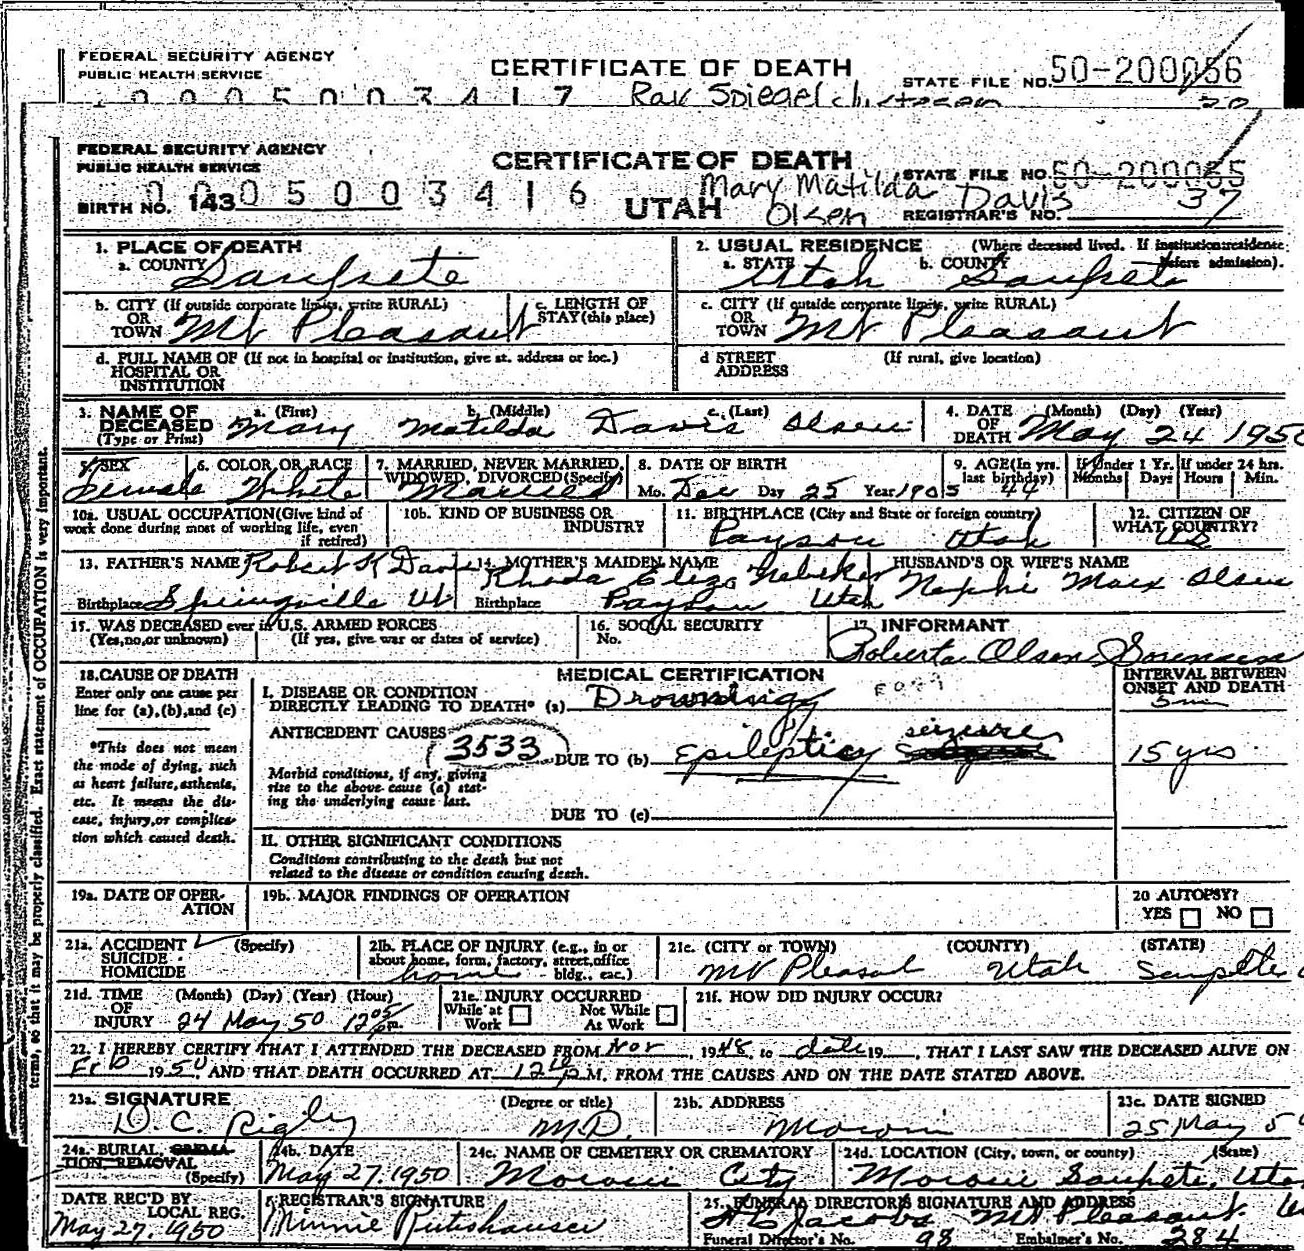 FEDERAL SECURITY AGENCY
PUBLIC HEALTH SERVICE
CERTIFICATE OF DEATH
STATE FILE NO. 50-200056
0005003417
FEDERAL SECURITY AGENCY
PUBLIC HEALTH SERVICE
CERTIFICATE OF DEATH
STATE FILE NO. 50-200055
BIRTH NO. 143 0005003416
UTAH
Mary Matilda Davis
Olsen
REGISTRAR'S NO. 37
1. PLACE OF DEATH
a. COUNTY Sanpete
2. USUAL RESIDENCE (Where deceased lived. If institution: residence before admission).
a. STATE Utah b. COUNTY Sanpete
b. CITY (If outside corporate limits, write RURAL)
OR
TOWN Mt Pleasant
c. LENGTH OF
STAY (this place)
c. CITY (If outside corporate limits, write RURAL)
OR
TOWN Mt Pleasant
d. FULL NAME OF (If not in hospital or institution, give st. address or loc.)
HOSPITAL OR
INSTITUTION
d STREET (If rural, give location)
ADDRESS
3. NAME OF DECEASED
(Type or Print)
a. (First) b. (Middle) c. (Last)
Mary Matilda Davis Olsen
4. DATE OF DEATH (Month) (Day) (Year)
May 24 1950
5. SEX
Female
6. COLOR OR RACE
White
7. MARRIED, NEVER MARRIED,
WIDOWED, DIVORCED (Specify)
Married
8. DATE OF BIRTH
Mo. Dec Day 25 Year 1905
9. AGE (In yrs. last birthday)
44
If Under 1 Yr.
Months Days
If under 24 hrs.
Hours Min.
10a. USUAL OCCUPATION (Give kind of
work done during most of working life, even
if retired)
10b. KIND OF BUSINESS OR
INDUSTRY
11. BIRTHPLACE (City and State or foreign country)
Payson Utah
12. CITIZEN OF
WHAT COUNTRY?
US
13. FATHER'S NAME Robert K Davis
Birthplace Springville Ut
14. MOTHER'S MAIDEN NAME
Rhoda Eliza
Birthplace Payson Utah
HUSBAND'S OR WIFE'S NAME
Nephi Marx Olsen
15. WAS DECEASED ever in U.S. ARMED FORCES
(Yes, no, or unknown) (If yes, give war or dates of service)
16. SOCIAL SECURITY
No.
17. INFORMANT
Roberta Olsen Sorensen
18. CAUSE OF DEATH
Enter only one cause per
line for (a), (b), and (c)
*This does not mean
the mode of dying, such
as heart failure, asthenia,
etc. It means the dis-
ease, injury, or complica-
tion which caused death.
MEDICAL CERTIFICATION
I. DISEASE OR CONDITION
DIRECTLY LEADING TO DEATH* (a) Drowning
INTERVAL BETWEEN
ONSET AND DEATH
5 min
ANTECEDENT CAUSES
3533
DUE TO (b) Epileptic seizures
15 yrs.
Morbid conditions, if any, giving
rise to the above cause (a) stat-
ing the underlying cause last.
DUE TO (c)
II. OTHER SIGNIFICANT CONDITIONS
Conditions contributing to the death but not
related to the disease or condition causing death.
19a. DATE OF OPER-
ATION
19b. MAJOR FINDINGS OF OPERATION
20 AUTOPSY?
YES NO
21a. ACCIDENT (Specify)
SUICIDE
HOMICIDE
21b. PLACE OF INJURY (e.g., in or
about home, form, factory, street, office
bldg., eac.)
home
21c. (CITY or TOWN) (COUNTY) (STATE)
Mt Pleasant Utah Sanpete
21d. TIME OF INJURY (Month) (Day) (Year) (Hour)
24 May 50 12 05 pm.
21e. INJURY OCCURRED
While at Work
Not While At Work
21f. HOW DID INJURY OCCUR?
22. I HEREBY CERTIFY THAT I ATTENDED THE DECEASED FROM Nov, 1948, to date 19, THAT I LAST SAW THE DECEASED ALIVE ON
Feb 1950, AND THAT DEATH OCCURRED AT 12 P.M. FROM THE CAUSES AND ON THE DATE STATED ABOVE.
23a. SIGNATURE (Degree or title)
D. C. Rigby M.D.
23b. ADDRESS
Moroni
23c. DATE SIGNED
25 May 50
24a. BURIAL, CREMA-
TION REMOVAL
(Specify)
24b. DATE
May 27, 1950
24c. NAME OF CEMETERY OR CREMATORY
Moroni City
24d. LOCATION (City, town, or county) (State)
Moroni Sanpete, Utah
DATE REC'D BY
LOCAL REG.
May 27, 1950
REGISTRAR'S SIGNATURE
Minnie Rutishauser
25. FUNERAL DIRECTOR'S SIGNATURE AND ADDRESS
Jacobs Mt Pleasant
Funeral Director's No. 98 Embalmer's No. 284
terms, so that it may be properly classified. Exact statement of OCCUPATION is very important.